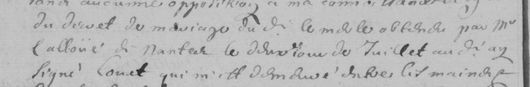 sans aucune opposition a ma connoissance
du decret de mariage du d. le merle obtenu par Mr
l'alloué de Nantes le dernier de Juillet au d. an
Signé Couet qui m'est demeuré entre les mains